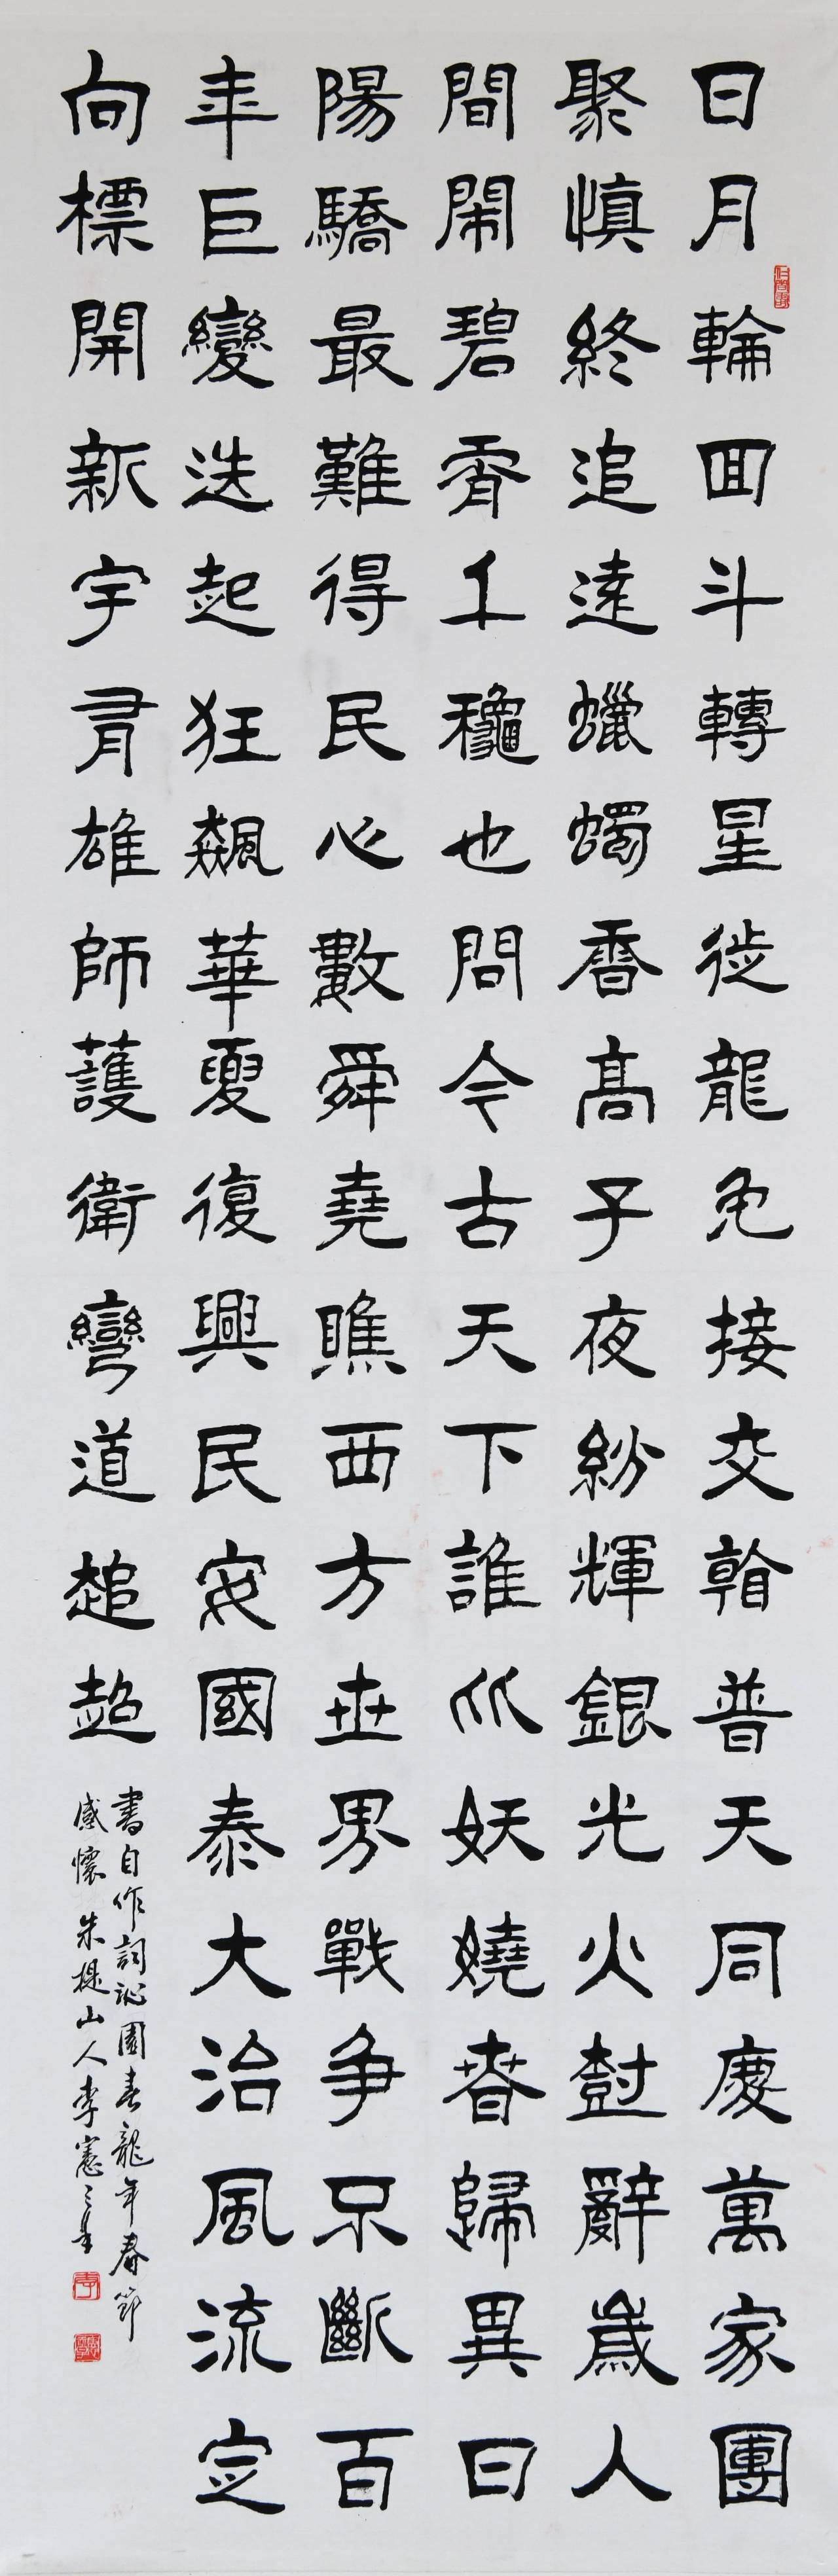 日月輪回斗轉星徙龍兔接交朝普天同慶萬家團
聚慎終追遠蠟蠋香高子夜紛輝銀光火尌辭歲人
間鬧碧霄千穐也問今古天下誰比妖嬈春歸異日
陽驕最難得民心數舜堯瞧西方世界戰爭不斷百
年巨變迭起狂飆華夏復興民安國泰大治風流定
向標開新宇有雄師護衛彎道趕超
書自作詞沁園春龍年春節
感懷朱提山人李憲之書